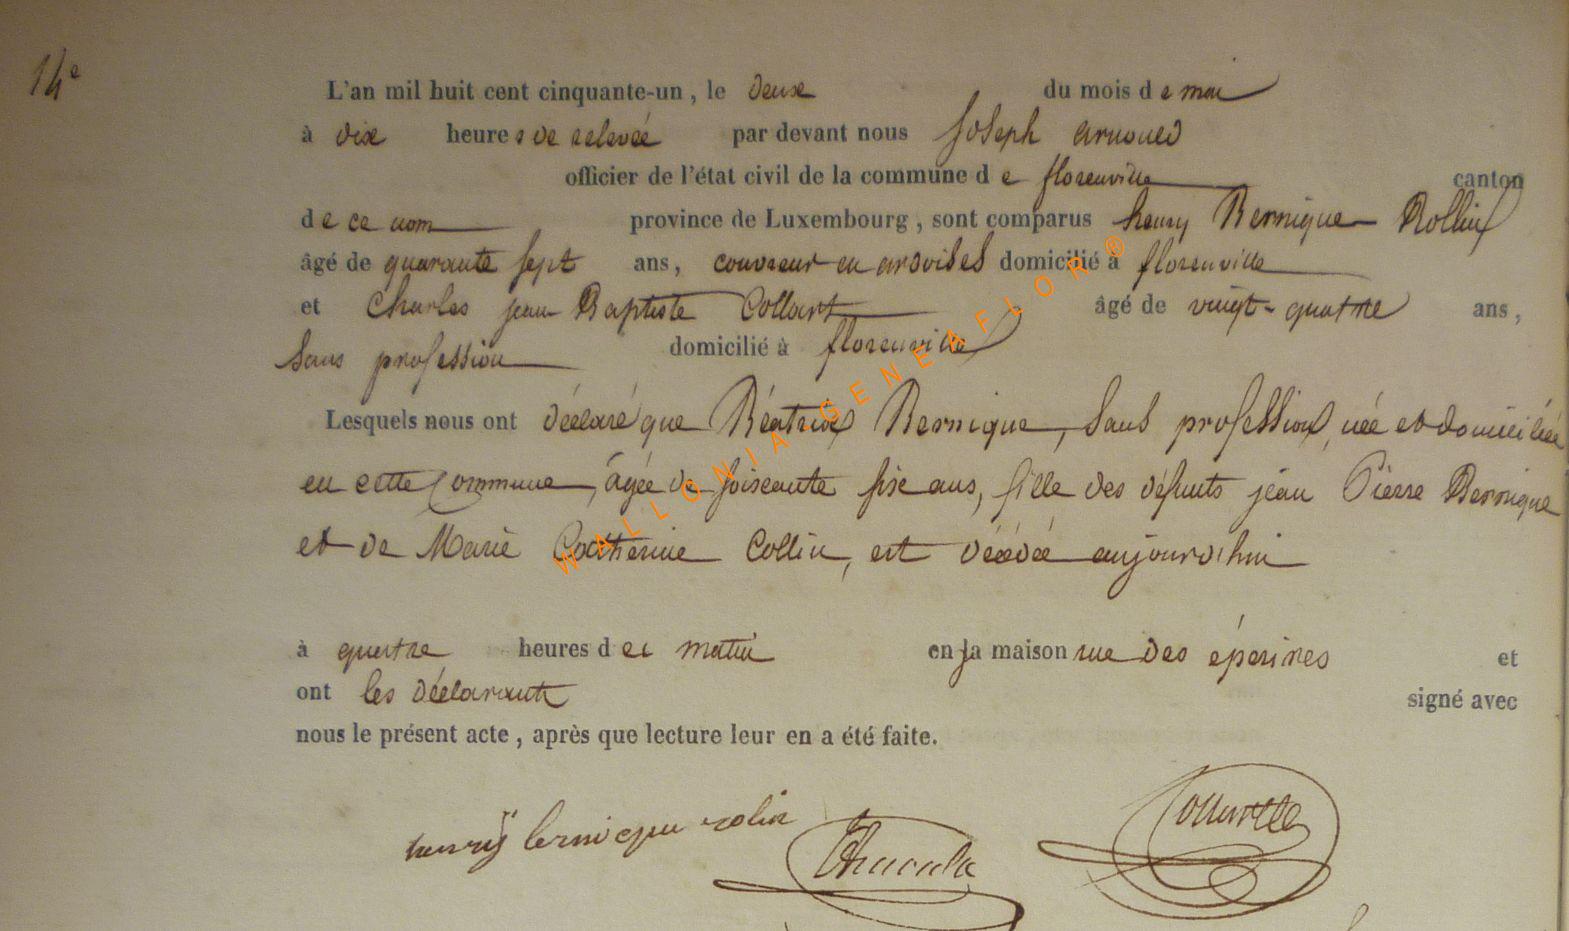 14e
L'an mil huit cent cinquante-un, le deux du mois de mai
à dix heures de relevée par devant nous Joseph Arnould
officier de l'état civil de la commune de florenville canton
de ce nom province de Luxembourg, sont comparus henry Bernique Rollin
âgé de quarante sept ans, couvreur en ardoises domicilié à florenville
et Charles jean Baptiste Collart âgé de vingt-quatre ans,
sans profession domicilié à florenville
Lesquels nous ont déclaré que Béatrix Bernique, sans profession, née et domiciliée
en cette Commune, âgée de soixante six ans, fille des défunts jean Pierre Bernique
et de Marie Catherine Collin, est décédée aujourd'hui
à quatre heures du matin en sa maison rue des épesines et
ont les déclarants signé avec
nous le présent acte, après que lecture leur en a été faite.
henry bernique rolin
WALLONIA-GENEAFLOR®